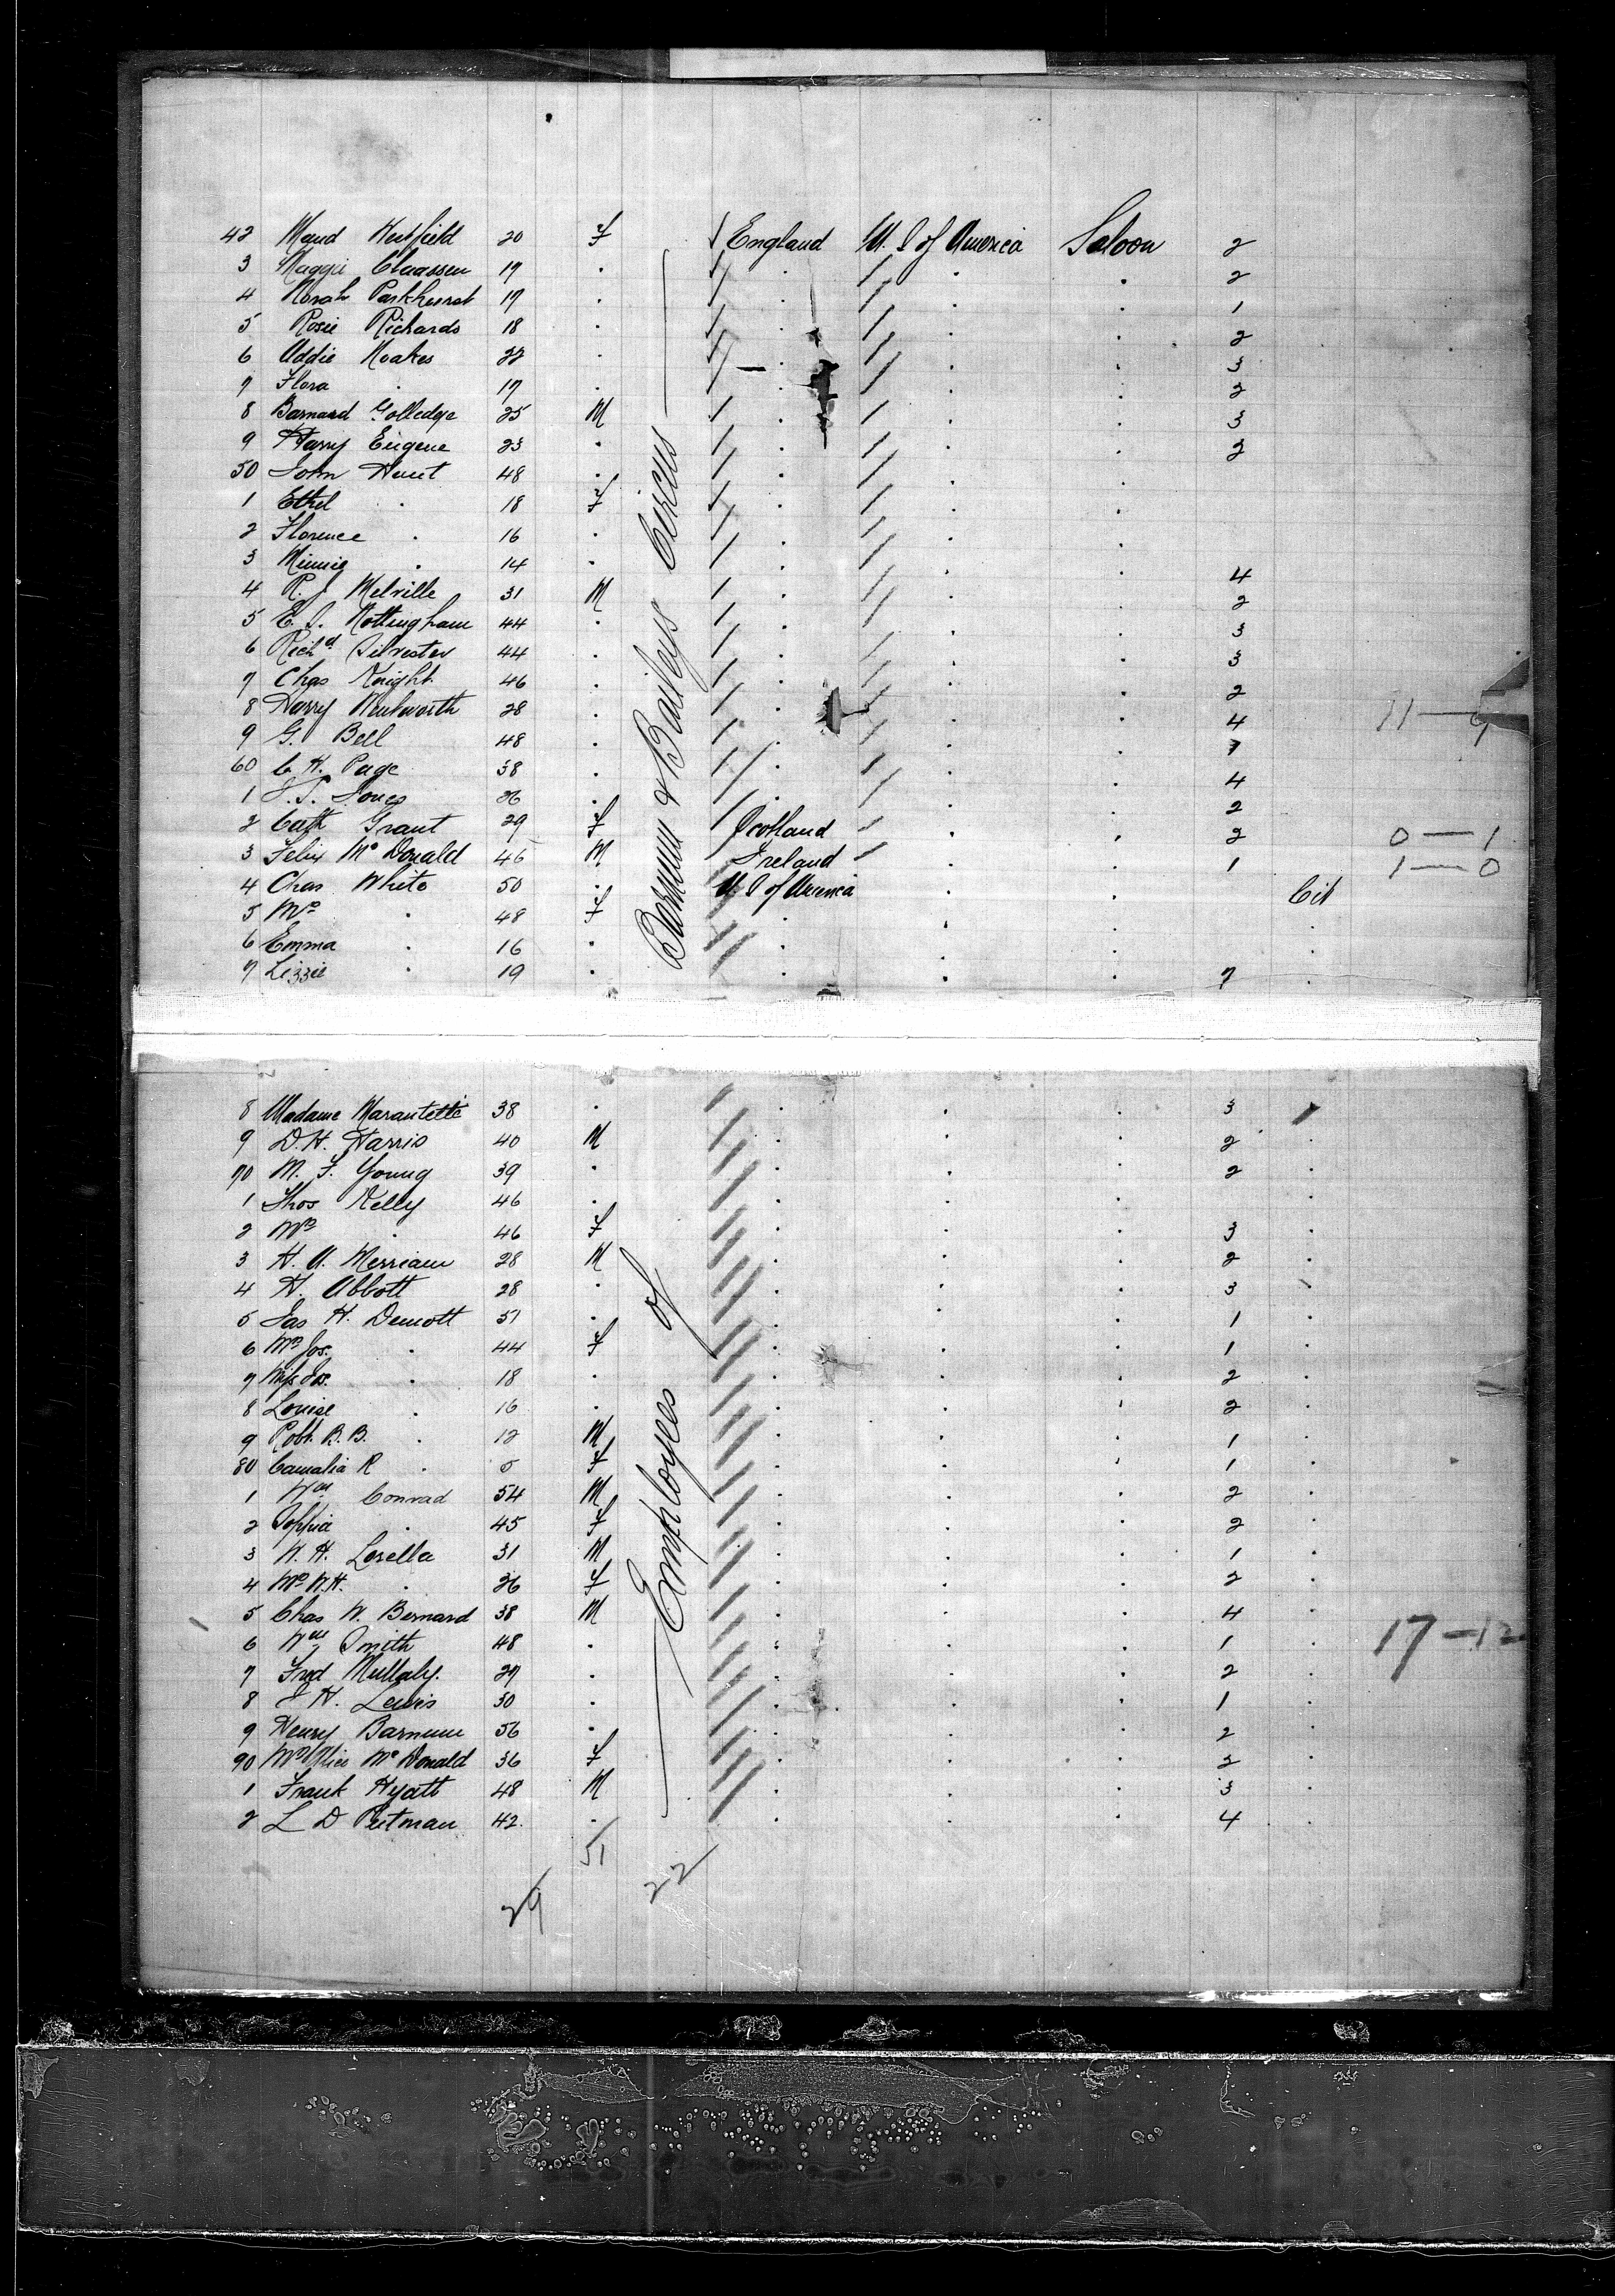 42 Maud Westfield 20 F England U. S of America Saloon 2
3 Maggie Claassen 19 . . . . 2
4 Norah Parkhurst 19 . . . . 1
5 Rosie Richards 18 . . . . 2
6 Addie Noakes 22 . . . . 3
7 Flora . 17 . . . . 2
8 Barnard Golledge 25 M . . . 3
9 Harry Eugene 23 . . . . 2
50 John Hunt 48 . . . .
1 Ethel . 18 F . . .
2 Florence . 16 . . . .
3 Minnie . 14 . . . . 4
4 R. J Melville 31 M . . . 2
5 E. S. Nottingham 44 . . . . 3
6 Richd Silvester 44 . . . . 3
7 Chas Knight 46 . . . . 2
8 Harry Wentworth 28 . . . . 4 11 — 9
9 G. Bell 48 . . . . 1
60 C H. Page 38 . . . . 4
1 J. S. Jones 26 . . . . 2
2 Cath Grant 29 F Scotland . . 2 0 — 1
3 Felix Mc Donald 45 M Ireland . . 1 1 — 0
4 Chas White 50 . U. S of America . . Cit
5 Mrs . 48 F . . . .
6 Emma . 16 . . . . .
7 Lizzie . 19 . . . . 7 .
8 Madame Marantette 38 . . . . 3
9 D. H. Harris 40 M . . . 2 .
70 M. F. Young 39 . . . . 2 .
1 Thos Kelly 46 . . . . .
2 Mrs . 46 F . . . 3 .
3 H. A. Merriam 28 M . . . 2 .
4 H. Abbott 28 . . . . 3 .
5 Jas H. Demott 51 . . . . 1 .
6 Mrs Jos. . 44 F . . . 1 .
7 Miss Jos. . 18 . . . . 2 .
8 Louise . 16 . . . . 2 .
9 Robt. B. B. . 12 M . . . 1 .
80 Camalia R . 5 F . . . 1 .
1 Wm Conrad 54 M . . . 2 .
2 Sophia . 45 F . . . 2 .
3 W. H. Lorella 31 M . . . 1 .
4 Mrs W. H. . 26 F . . . 2 .
5 Chas W. Bernard 38 M . . . 4 .
6 Wm Smith 48 . . . . 1 . 17 — 12
7 Fred Mullaly. 27 . . . . 2 .
8 J H. Lewis 30 . . . . 1 .
9 Henry Barnum 56 . . . . 2 .
90 Mrs Mc Donald 36 F . . . 2 .
1 Frank Hyatt 48 M . . . 3 .
2 L D Putman 42. . . . . 4 .
Employees of Barnum & Baileys Circus
51
29 22